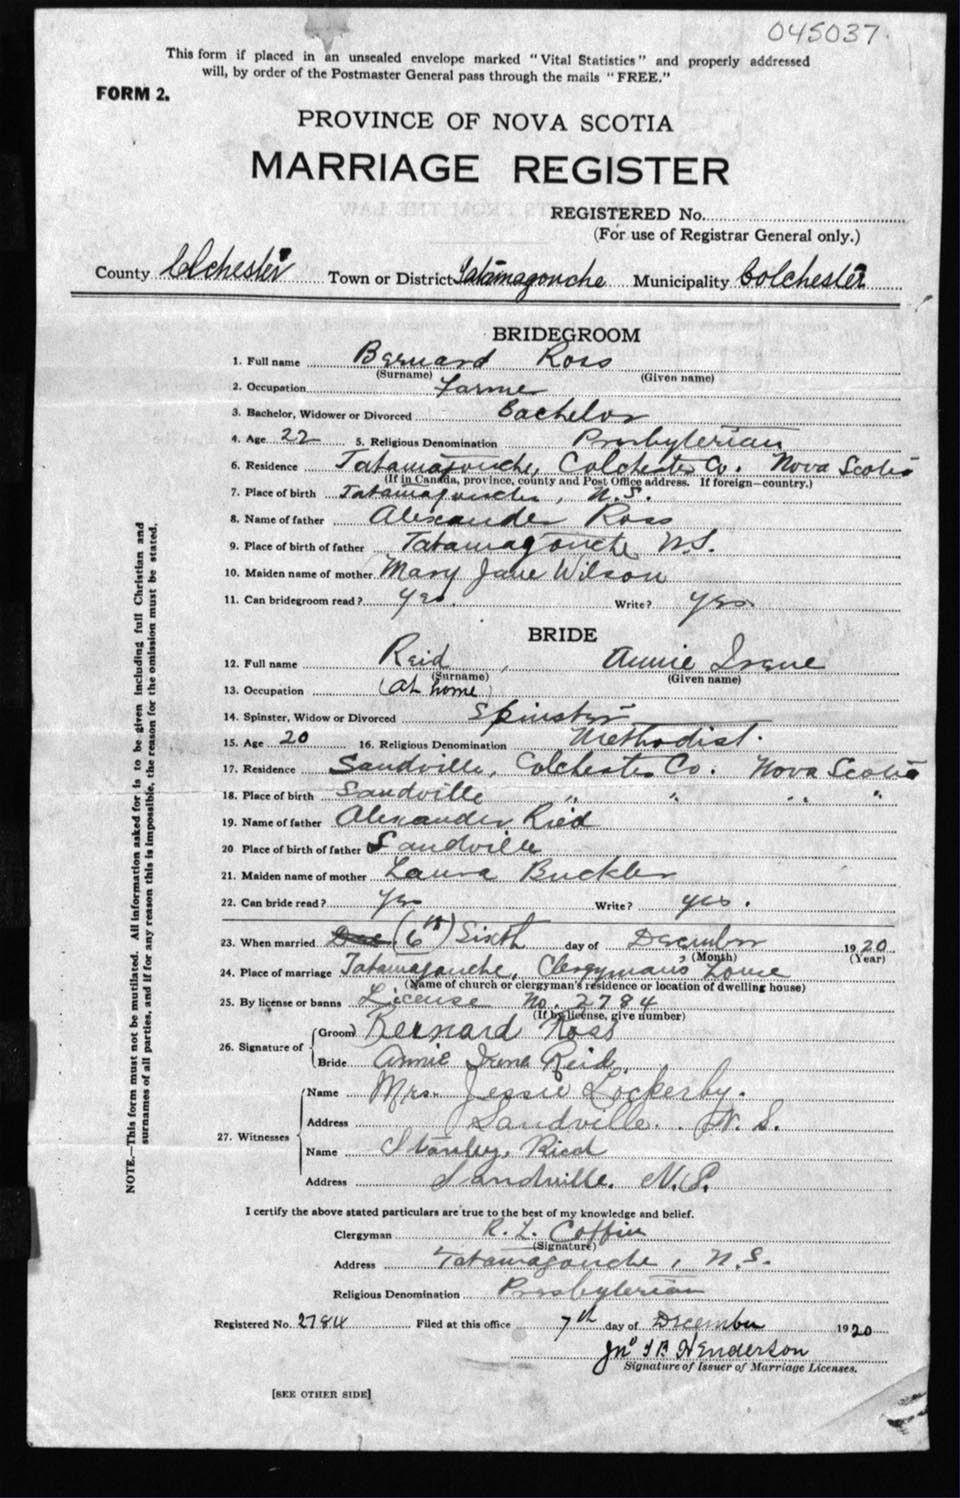 045037.
This form if placed in an unsealed envelope marked "Vital Statistics" and properly addressed
will, by order of the Postmaster General pass through the mails "FREE."
FORM 2.
PROVINCE OF NOVA SCOTIA
MARRIAGE REGISTER
REGISTERED No.
(For use of Registrar General only.)
County Colchester Town or District Tatamagouche Municipality Colchester
BRIDEGROOM
1. Full name Bernard Ross
(Surname) (Given name)
2. Occupation Farmer
3. Bachelor, Widower or Divorced Bachelor
4. Age 22 5. Religious Denomination Presbyterian
6. Residence Tatamagouche, Colchester Co. Nova Scotia
(If in Canada, province, county and Post Office address. If foreign—country.)
7. Place of birth Tatamagouche, N.S.
8. Name of father Alexander Ross
9. Place of birth of father Tatamagouche N.S.
10. Maiden name of mother Mary Jane Wilson
11. Can bridegroom read? Yes. Write? Yes
BRIDE
12. Full name Reid, Annie Irene
(Surname) (Given name)
13. Occupation (at home)
14. Spinster, Widow or Divorced Spinster
15. Age 20 16. Religious Denomination Methodist.
17. Residence Sandville, Colchester Co. Nova Scotia
18. Place of birth Sandville " " " "
19. Name of father Alexander Ried
20. Place of birth of father Sandville
21. Maiden name of mother Laura Buckler
22. Can bride read? Yes Write? yes.
23. When married Dec (6th) Sixth day of December 1920
(Month) (Year)
24. Place of marriage Tatamagouche, Clergyman's House
(Name of church or clergyman's residence or location of dwelling house)
25. By license or banns License No. 2784
(If by license, give number)
26. Signature of
Groom Bernard Ross
Bride Annie Irene Reid.
27. Witnesses
Name Mrs. Jessie Lockerby.
Address Sandville. N.S.
Name Stanley, Ried
Address Sandville. N.S.
I certify the above stated particulars are true to the best of my knowledge and belief.
Clergyman R. L. Coffin
(Signature)
Address Tatamagouche, N.S.
Religious Denomination Presbyterian
Registered No. 2784 Filed at this office 7th day of December 1920
Jno Henderson
Signature of Issuer of Marriage Licenses.
[SEE OTHER SIDE]
NOTE.—This form must not be mutilated. All information asked for is to be given including full Christian and
surnames of all parties, and if for any reason this is impossible, the reason for the omission must be stated.